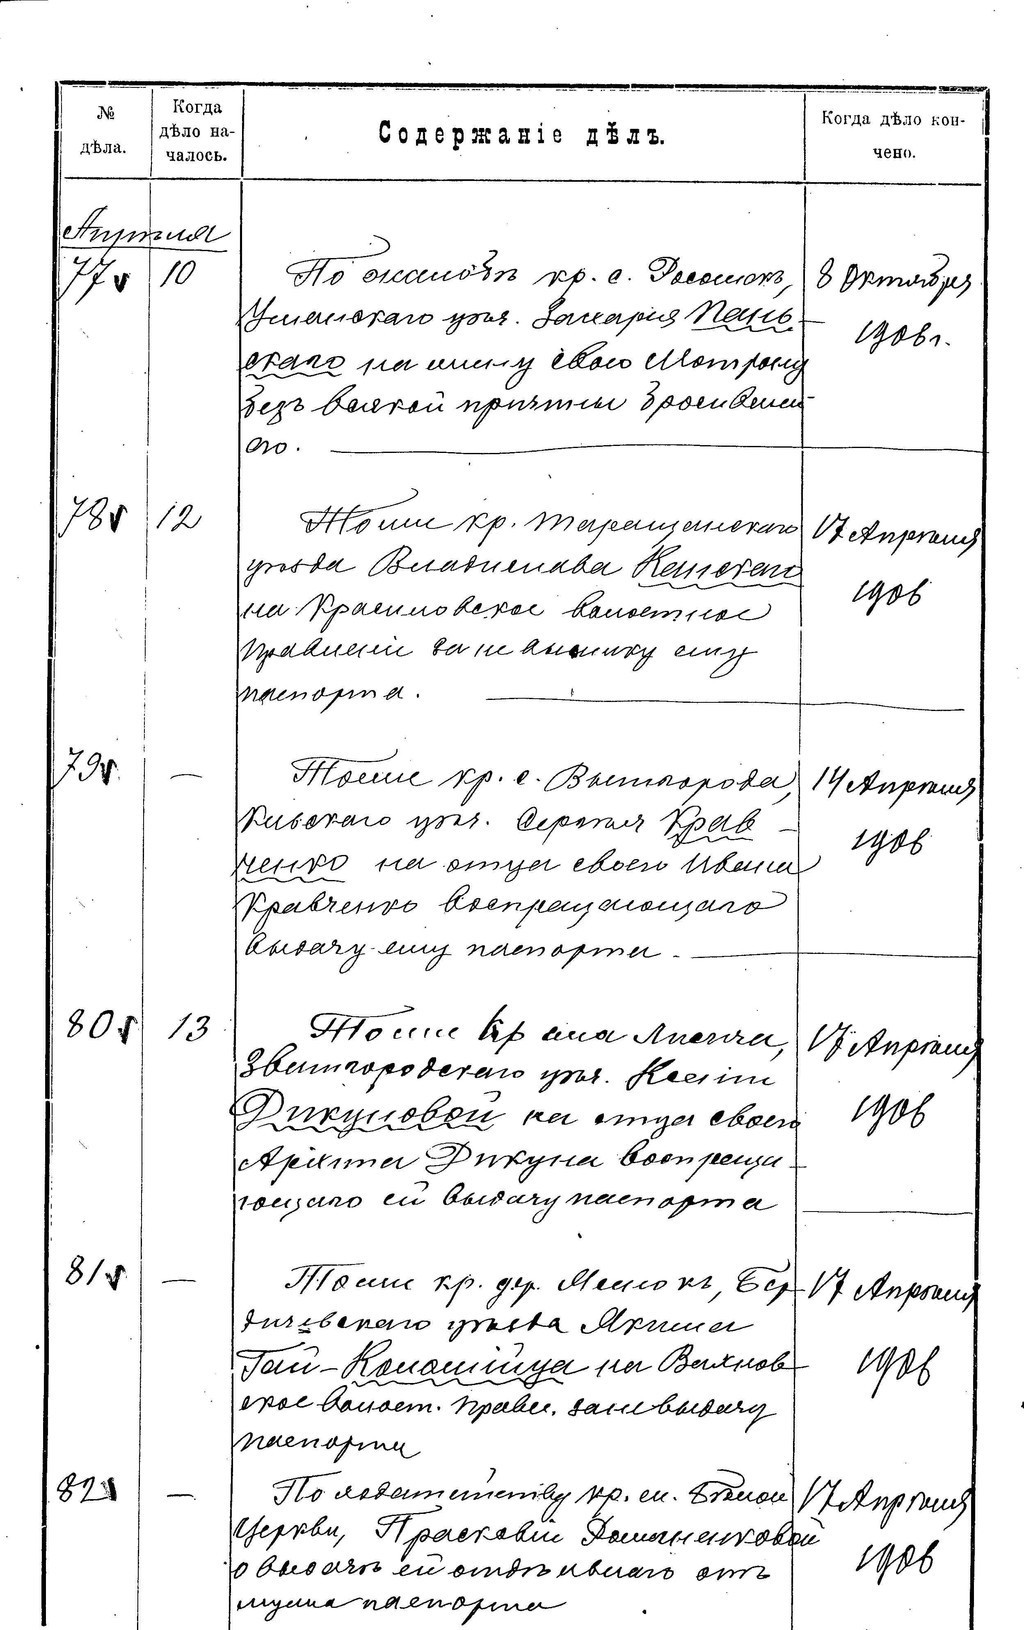 № дѣла.
Когда дѣло на-
чалось.
Содержаніе дѣлъ.
Когда дѣло кон-
чено.
Апрѣля
77 10 По жалобѣ кр. с. Россошекъ, 8 Октября
Уманскаго уѣз. Захарія Пень- 1906 г.
скаго на жену свою Мотрону
безъ всякой причины бросившей
его.
78 12 Тоже кр. Таращанскаго 17 Апрѣля
уѣзда Владислава Канскаго 1906
на Красиловское волостное
Правленіе за невысылку ему
паспорта.
79 — Тоже кр. с. Вышгорода, 14 Апрѣля
Кіевскаго уѣз. Сергѣя Крав- 1906
ченко на отца своего Ивана
Кравченко воспрещающаго
выдачу ему паспорта.
80 13 Тоже кр. с. Лисичи, 17 Апрѣля
Звенигородскаго уѣз. Ксеніи
Дикуновой на отца своего 1906
Архипа Дикуна воспреща-
ющаго ей выдачу паспорта
81 — Тоже кр. дер. Бер- 17 Апрѣля
дичевскаго уѣзда Якима
Гай-Коломійца на Вахнов- 1906
ское волост. Правл. за невыдачу
паспорта
82 — По ходатайству кр. м. Бѣлой 17 Апрѣля
Церкви, Прасковіи Доманенковой
о выдачѣ ей отдѣльнаго отъ 1906
мужа паспорта